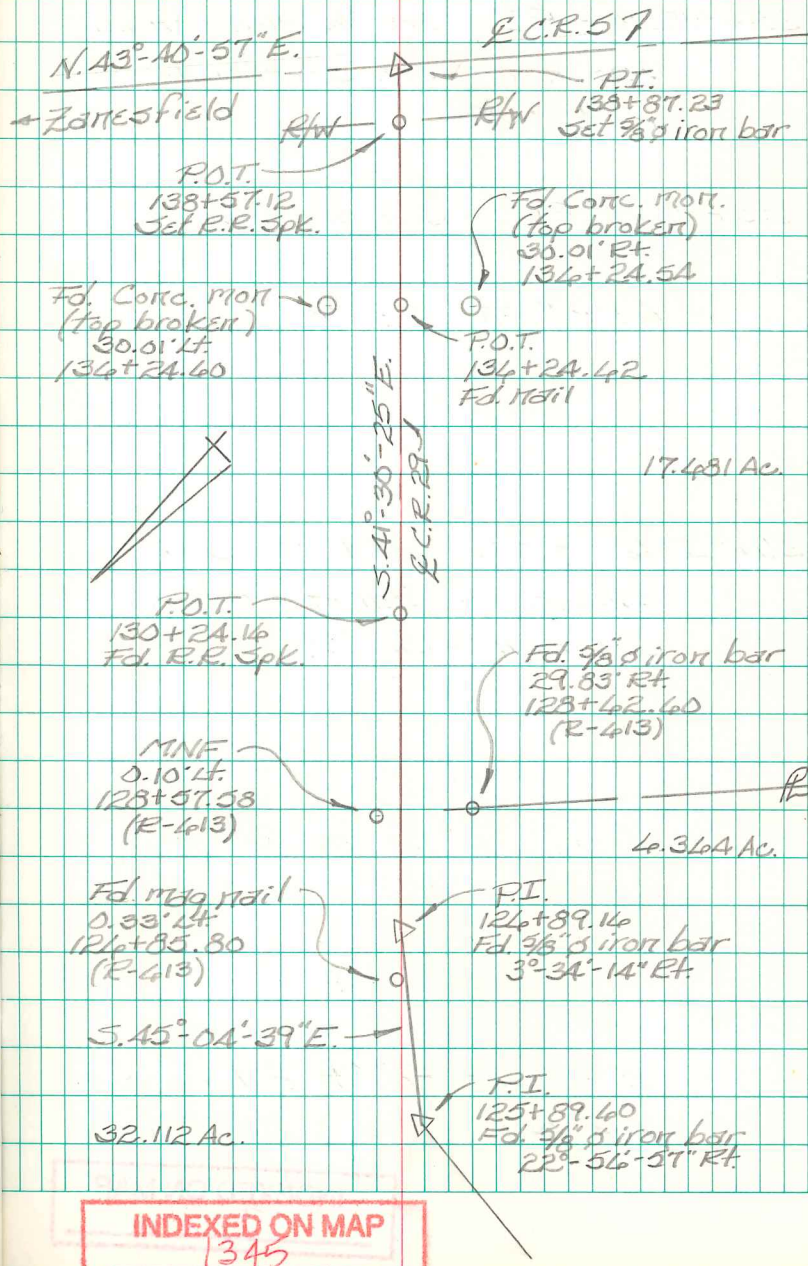 ℄ C.R. 57
N.43°-40'-57"E.
← Zanesfield
R/W
R/W
P.I.
138+87.23
Set 5/8"ø iron bar
P.O.T.
138+57.12
Set R.R. Spk.
Fd. Conc. mon.
(top broken)
30.01' Rt.
136+24.54
Fd. Conc. mon
(top broken)
30.01' Lt.
136+24.60
P.O.T.
136+24.62
Fd. nail
S.41°-30'-25"E.
℄ C.R. 29J
17.681 Ac.
P.O.T.
130+24.16
Fd. R.R. Spk.
Fd. 5/8"ø iron bar
29.83' Rt.
128+62.60
(R-613)
MNF
0.10' Lt.
128+57.58
(R-613)
℄
6.364 Ac.
Fd. mag nail
0.33' Lt.
126+85.80
(R-613)
P.I.
126+89.16
Fd. 5/8"ø iron bar
3°-34'-14" Rt.
S.45°-04'-39"E.
P.I.
125+89.60
Fd. 5/8"ø iron bar
22°-56'-57" Rt.
32.112 Ac.
INDEXED ON MAP
1345